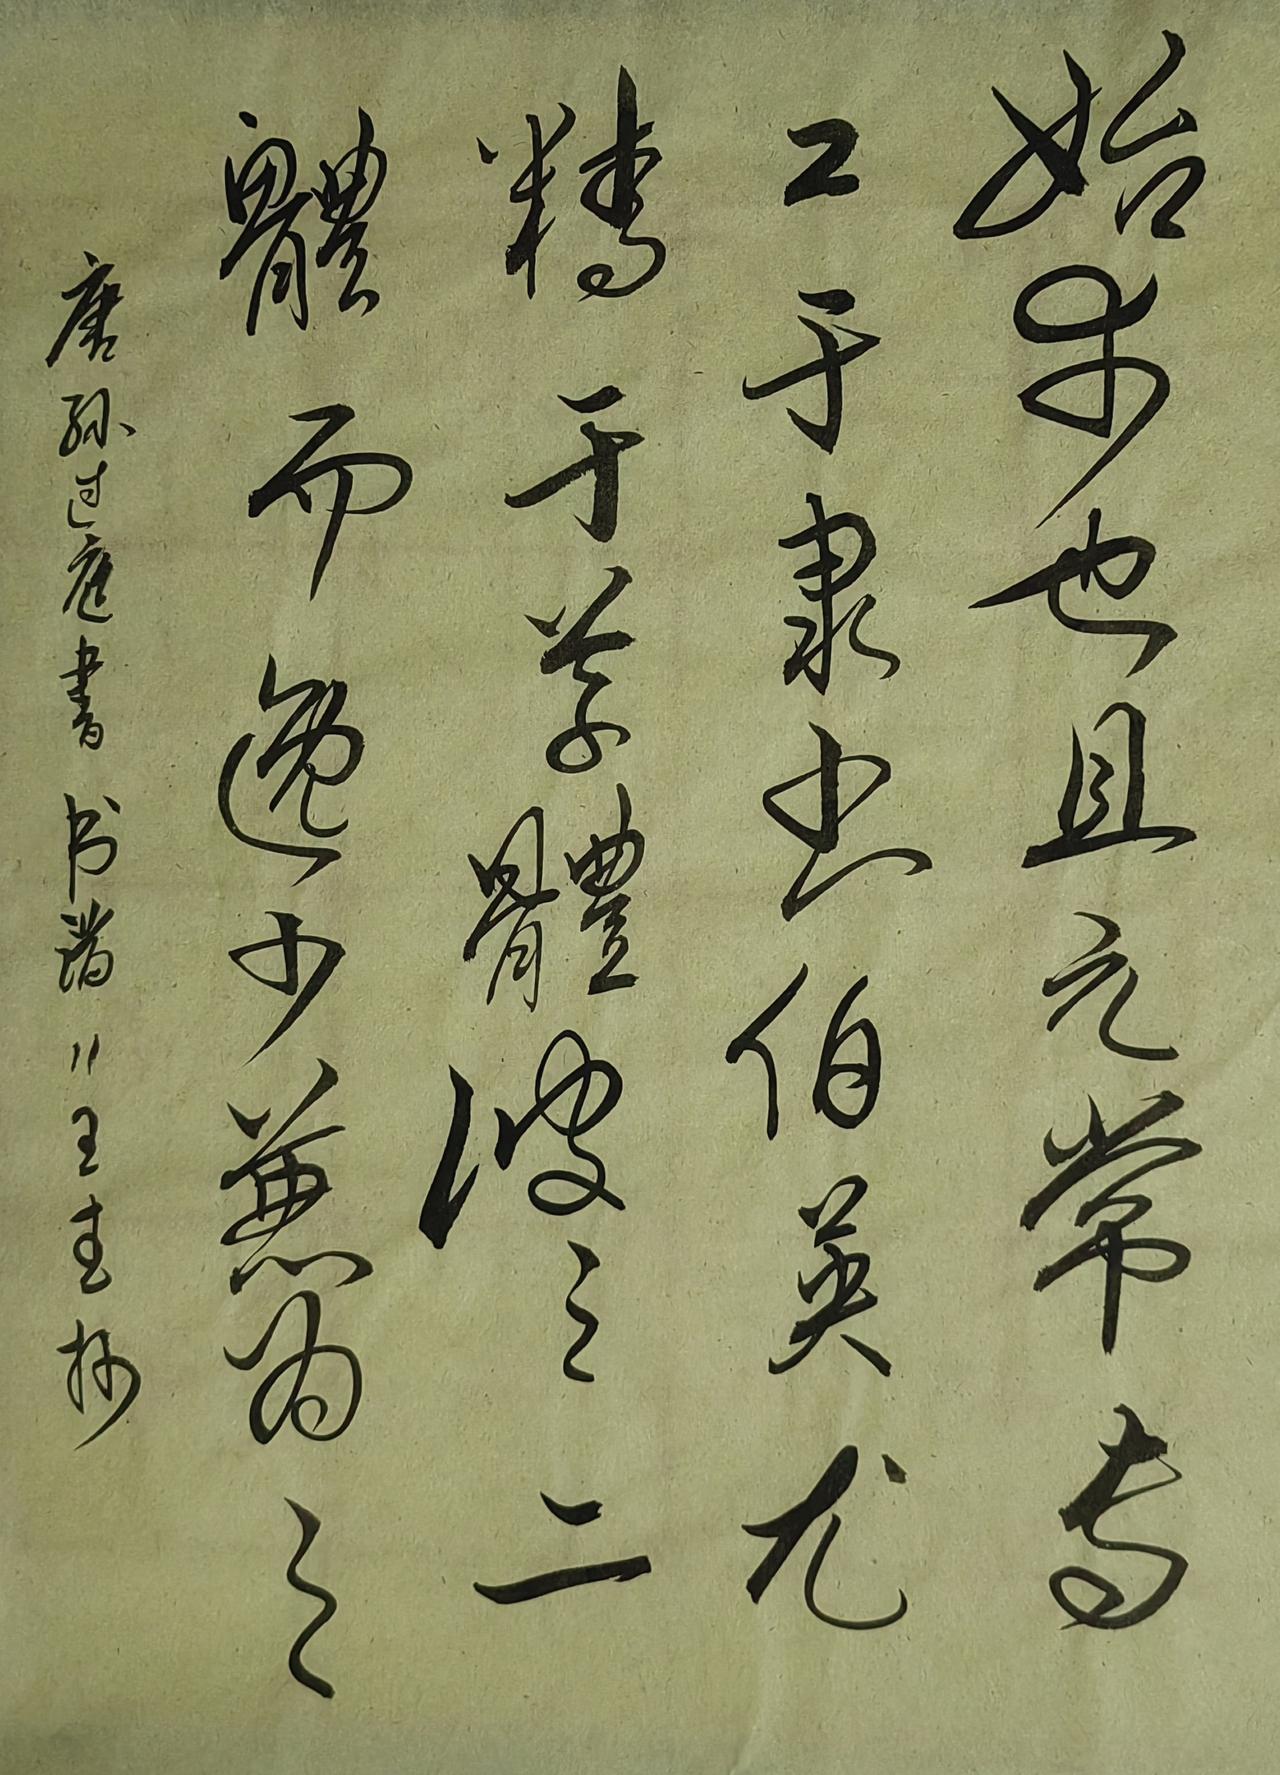 始也且元常专
工于隶书伯英尤
精于草體彼之二
體而逸少兼为之
唐孙过庭書书谱〃王